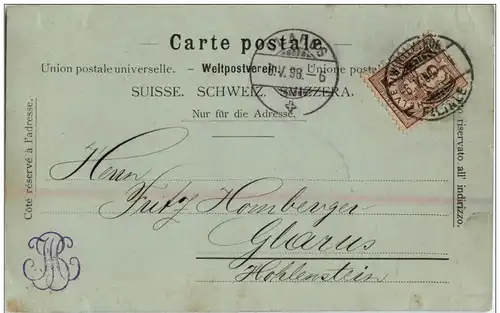 Carte postale.
Union postale universelle. — Weltpostverein. — Unione postale
SUISSE. SCHWEIZ. SVIZZERA.
Nur für die Adresse.
Côté réservé à l'adresse.
riservato all' indirizzo.
V. 98. – 6
FILIALE
Herrn
Fritz Homberger
Glarus
Hohlenstein